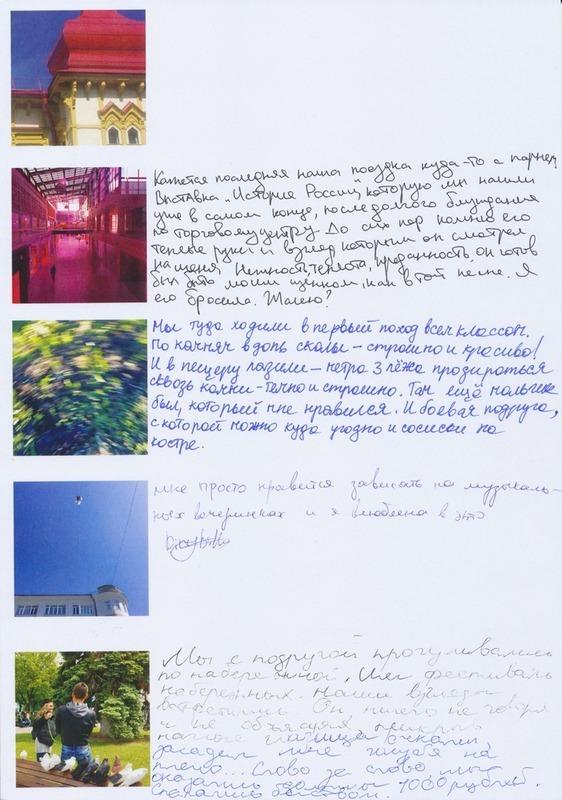 Кажется последняя наша поездка куда-то с парнем.
Выставка "История России", которую мы нашли
уже в самом конце, после долгого блуждания
по торговому центру. До сих пор помню его
теплые руки и взгляд которым он смотрел
на меня. Нежность, теплота, преданность, он готов
был быть моим щенком, как в той песне. Я
его бросила. Жалею?
Мы туда ходили в первый поход всем классом.
По камням вдоль скалы - страшно и красиво!
И в пещеру лазили - метра 3 лёжа продираться
сквозь камни - темно и страшно. Там ещё мальчик
был, который мне нравился. И боевая подруга,
с которой можно куда угодно и сосиски на
костре.
мне просто нравится зависать на музыкаль-
ных вечеринках и я влюблена в это
Мы с подругой прогуливались
по набережной. Шёл фестиваль
набережных. Наши взгляды
встретились. Он ничего не говоря
и не объясняя,
наглые
посадил мне голубя на
плечо... Слово за слово мы
оказались должны 1000 рублей.
Спасались бегством.